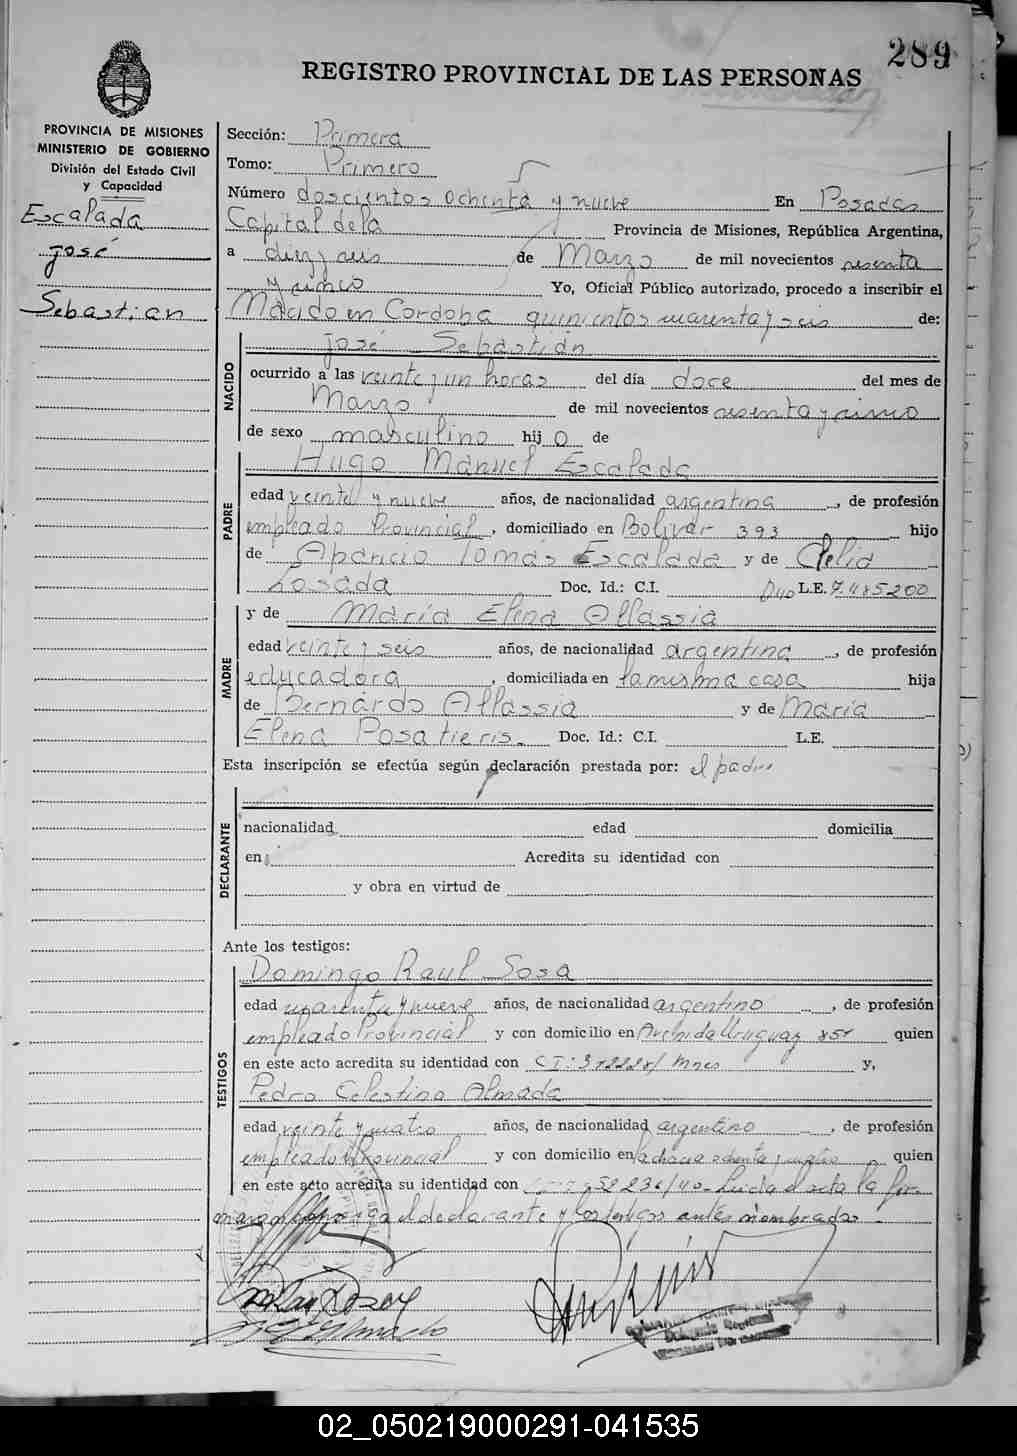 289
REGISTRO PROVINCIAL DE LAS PERSONAS
PROVINCIA DE MISIONES
MINISTERIO DE GOBIERNO
División del Estado Civil
y Capacidad
Escalada
José
Sebastian
Sección: Primera
Tomo: Primero
Número doscientos ochenta y nueve En Posadas
Capital de la Provincia de Misiones, República Argentina,
a diez y seis de Marzo de mil novecientos sesenta
y cinco Yo, Oficial Público autorizado, procedo a inscribir el
Nacido en Cordoba quinientos cuarenta y seis de:
José Sebastián
NACIDO
ocurrido a las veinte y un horas del día doce del mes de
Marzo de mil novecientos sesenta y cinco
de sexo masculino hijo de
Hugo Manuel Escalada
PADRE
edad veinte y nueve años, de nacionalidad argentina, de profesión
empleado Provincial, domiciliado en Bolivar 393 hijo
de Aparicio Tomás Escalada y de Clelia
Losada Doc. Id.: C.I. L.E. 7.485200
y de Maria Elena Allassia
MADRE
edad veinte y seis años, de nacionalidad argentina, de profesión
educadora, domiciliada en la misma casa hija
de Bernardo Allassia y de Maria
Elena Posatieris. Doc. Id.: C.I. L.E.
Esta inscripción se efectúa según declaración prestada por: el padre
DECLARANTE
nacionalidad edad domicilia
en Acredita su identidad con
y obra en virtud de
Ante los testigos:
Domingo Raul Sosa
TESTIGOS
edad cuarenta y nueve años, de nacionalidad argentino, de profesión
empleado Provincial y con domicilio en Avenida Uruguay 851 quien
en este acto acredita su identidad con C I: Mnes y,
Pedro Celestino Almada
edad veinte y cuatro años, de nacionalidad argentino, de profesión
empleado Provincial y con domicilio en la chacra ochenta y cuatro quien
en este acto acredita su identidad con Leida el acta la fir
maron el declarante y los testigos antes nombrados.
02_050219000291-041535